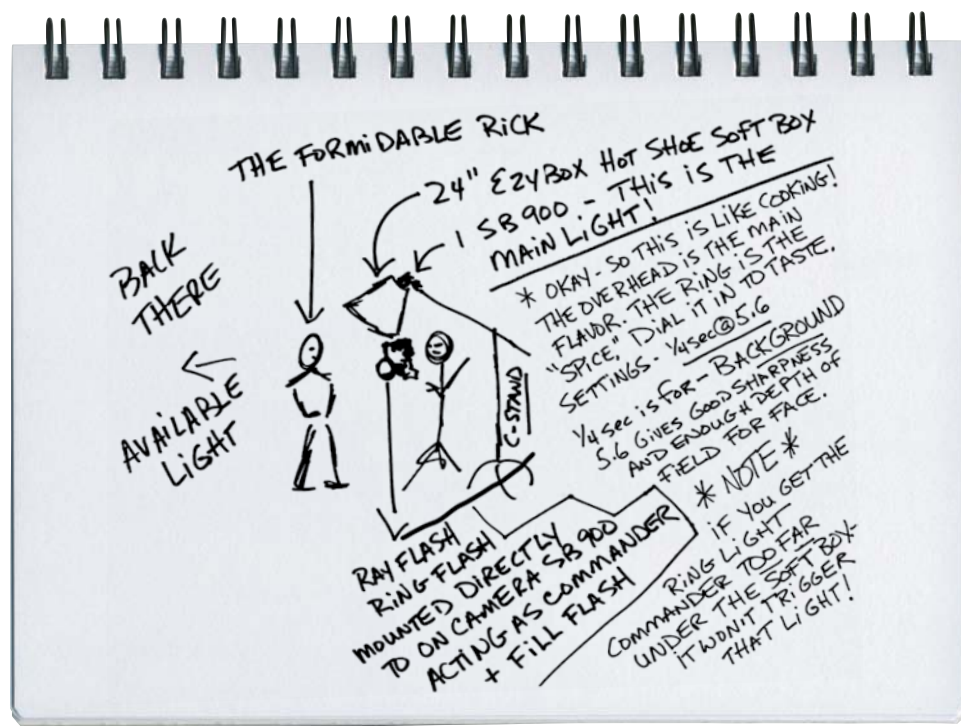 THE FORMIDABLE RICK
24" EZYBOX HOT SHOE SOFT BOX
1 SB 900 - THIS IS THE
MAIN LIGHT!
BACK
THERE
AVAILABLE
LIGHT
* OKAY - SO THIS IS LIKE COOKING!
THE OVERHEAD IS THE MAIN
FLAVOR. THE RING IS THE
"SPICE." DIAL IT IN TO TASTE.
SETTINGS - 1/4 sec @ 5.6
1/4 sec is for - BACKGROUND
5.6 GIVES GOOD SHARPNESS
AND ENOUGH DEPTH OF
FIELD FOR FACE.
C-STAND
RAY FLASH
RING FLASH
MOUNTED DIRECTLY
TO ON CAMERA SB 900
ACTING AS COMMANDER
+ FILL FLASH
* NOTE *
IF YOU GET THE
RING LIGHT
COMMANDER TOO FAR
UNDER THE SOFT BOX-
IT WON'T TRIGGER
THAT LIGHT!